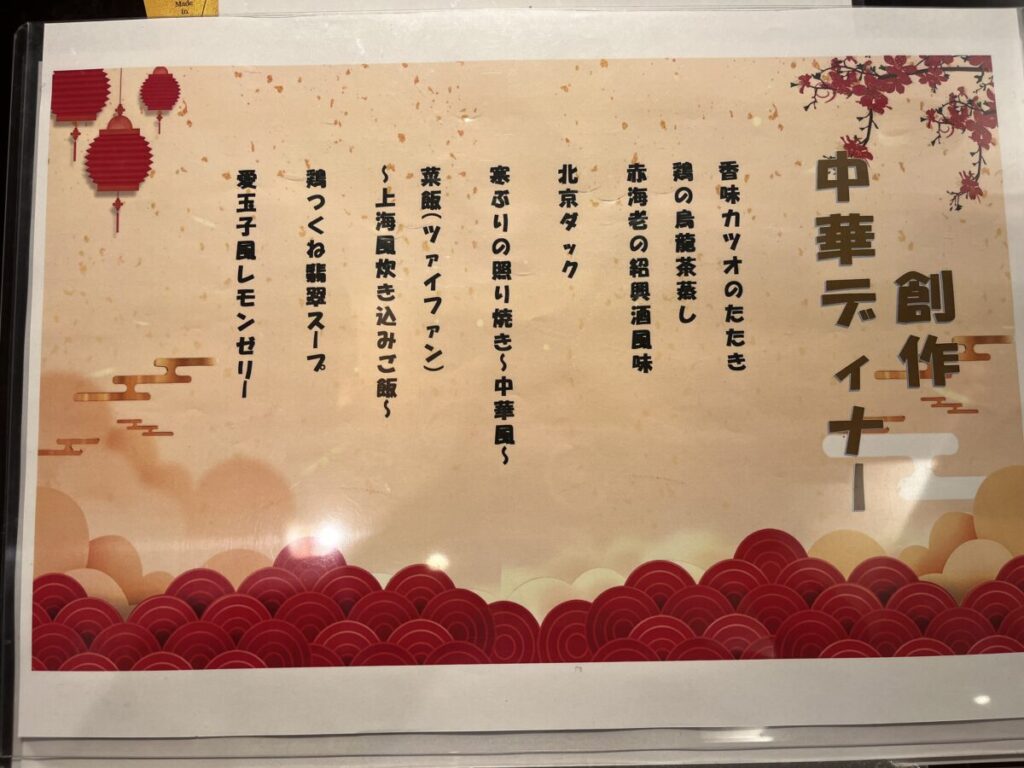 Made
in
創作
中華ディナー
香味カツオのたたき
鶏の烏龍茶蒸し
赤海老の紹興酒風味
北京ダック
寒ぶりの照り焼き～中華風～
菜飯(ツァイファン)
～上海風炊き込みご飯～
鶏つくね翡翠スープ
愛玉子風レモンゼリー